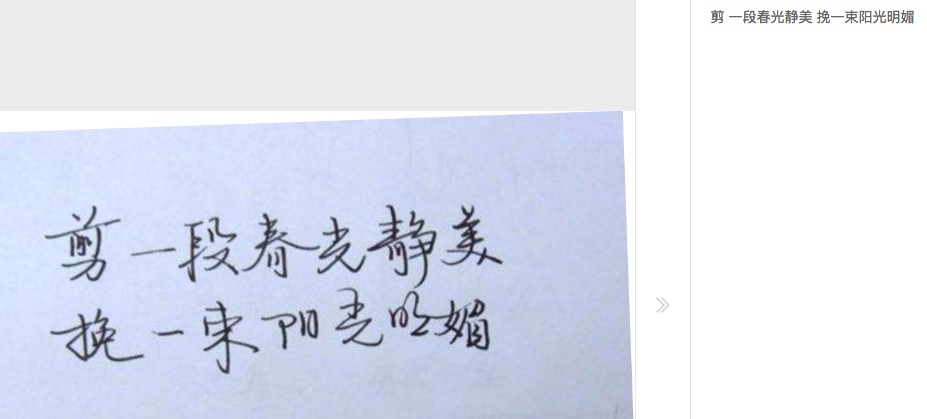 剪 一段春光静美 挽一束阳光明媚
剪一段春光静美
挽一束阳光明媚